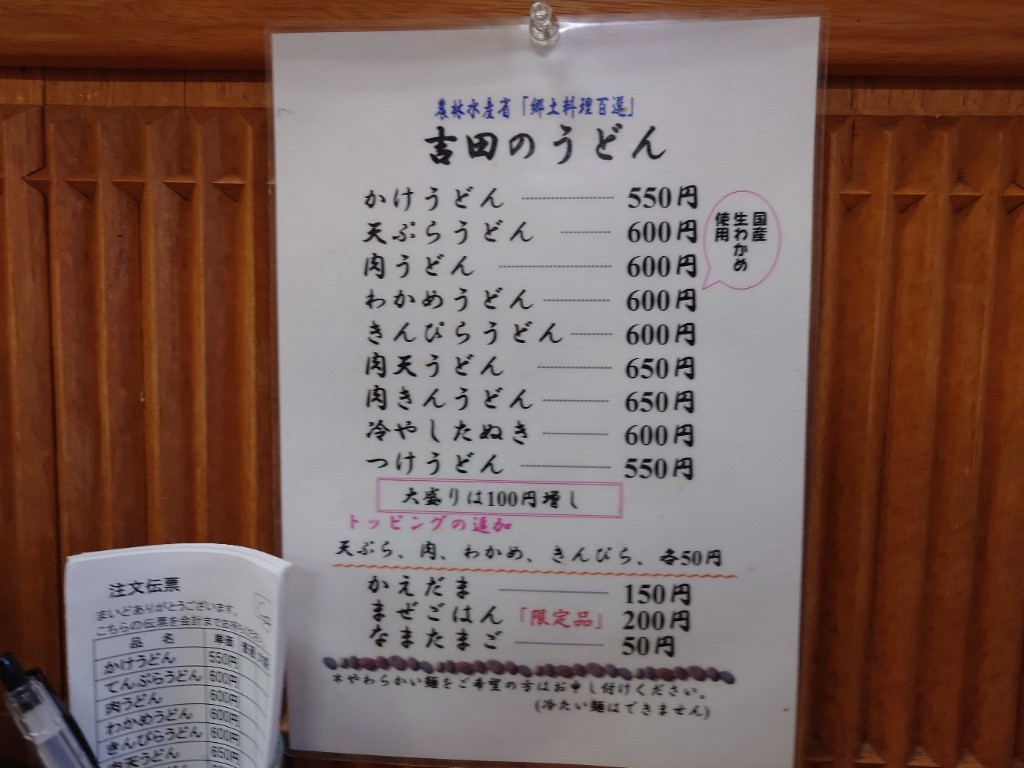 農林水産省「郷土料理百選」
吉田のうどん
かけうどん 550円
天ぷらうどん 600円
肉うどん 600円
わかめうどん 600円
きんぴらうどん 600円
肉天うどん 650円
肉きんうどん 650円
冷やしたぬき 600円
つけうどん 550円
国産
生わかめ
使用
大盛りは100円増し
トッピングの追加
天ぷら、肉、わかめ、きんぴら、各50円
かえだま 150円
まぜごはん「限定品」 200円
なまたまご 50円
*やわらかい麺をご希望の方はお申し付けください。
(冷たい麺はできません)
注文伝票
まいどありがとうございます。
こちらの伝票を会計までお持ち
品名 単価
かけうどん 550円
てんぷらうどん 600円
肉うどん 600円
わかめうどん 600円
きんぴらうどん 600円
肉天うどん 650円